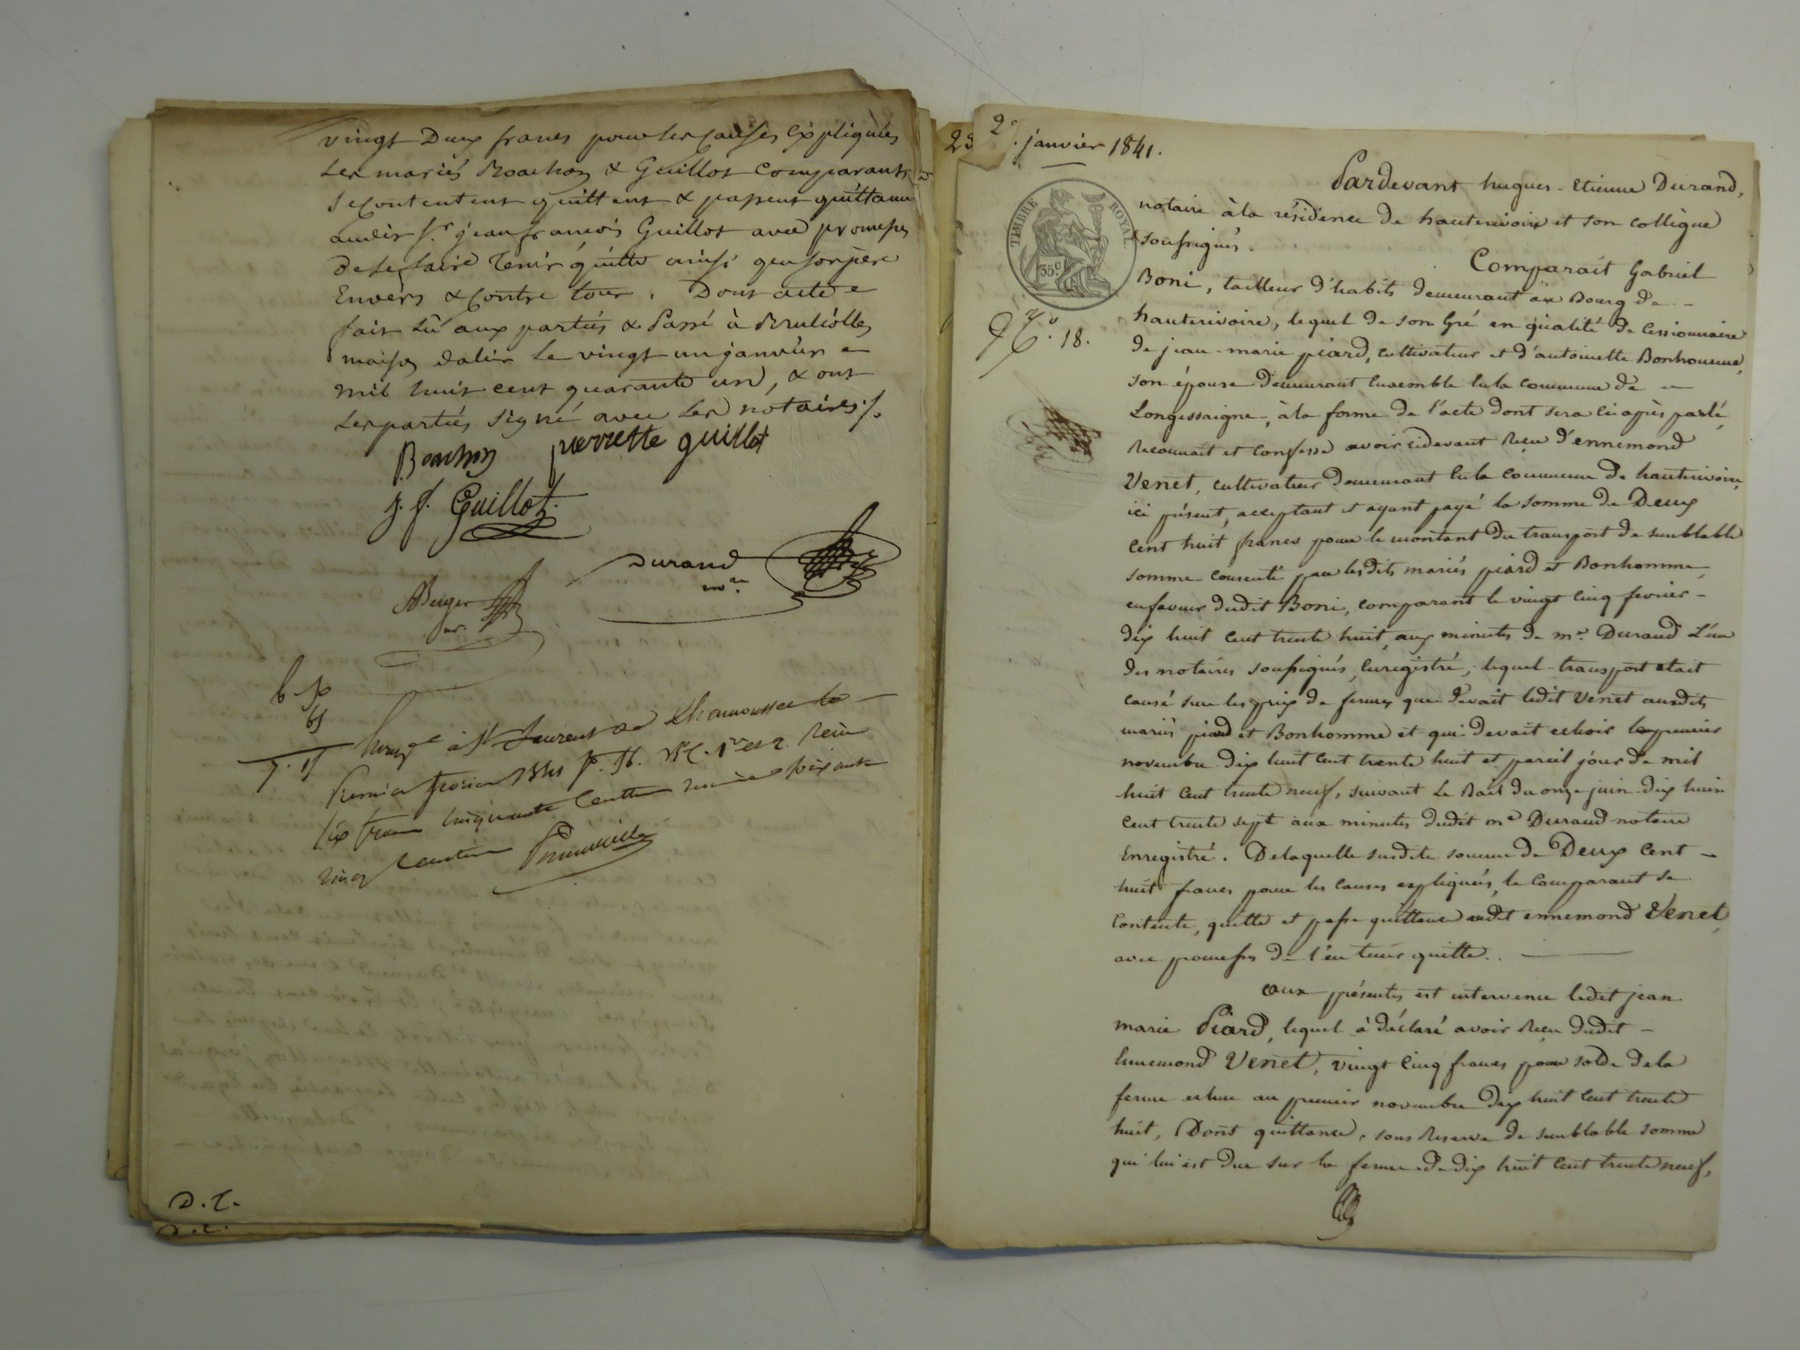 vingt Deux francs pour les causes Expliquées
Les mariés Boachon & Guillot Comparants
se Contentent quittent & passent quittance
audit S.r jean francois Guillot avec promesse
de le faire Tenir quitte ainsi que son père
Envers & Contre tous. Dont acte
fait Lû aux parties & Passé à Brullioles
maison dalier Le vingt un janvier
mil huit cent quarante un, & ont
Les parties signé avec Les notaires ./.
Boachon pierrette guillot
j. f. Guillot
Durand
n.re
ABerger
n.re
Enreg.é à St Laurent de Chamousset le
Premier février 1841 f. 56. v.o C. 1re et 2. Reçu
francs cinquante centimes
centimes
D. T.
23 janvier 1841.
TIMBRE ROYAL
35c
N.o 18.
Pardevant hugues-Etienne Durand,
notaire à la résidence de hauterivoire et son collègue
soussignés.
Comparait Gabriel
Boni, tailleur d'habits demeurant au Bourg de
hauterivoire, lequel de son Gré en qualité de Cessionnaire
de jean-marie piard, cultivateur et d'antoinette Bonhomme,
son épouse demeurant Ensemble En la commune de
Longessaigne, à la forme de l'acte dont sera ci après parlé,
Reconnait et confesse avoir cidevant Reçu d'ennemond
Venet, cultivateur demeurant En la commune de hauterivoire,
ici présent, acceptant et ayant payé la somme de Deux
Cent huit francs pour le montant du transport de semblable
somme consenti par lesdits mariés piard et Bonhomme,
en faveur dudit Boni, comparant le vingt Cinq fevrier
dix huit cent trente huit, aux minutes de m.e Durand L'un
des notaires soussignés, Enregistré; lequel transport était
causé sur les prix de fermes que devait ledit Venet auxdits
mariés piard et Bonhomme et qui devait echoir le premier
novembre dix huit cent trente huit et pareil jour de mil
huit Cent trente neuf, suivant Le Bail du onze juin dix huit
Cent trente sept aux minutes dudit m.e Durand notaire
Enregistré. De laquelle susdite somme de Deux Cent
huit francs pour les causes expliquées, le Comparant se
Contente, quitte et passe quittance audit ennemond Venet,
avec promesse de l'en tenir quitte.
aux présentes est intervenu ledit jean
marie Piard, lequel à déclaré avoir Reçu dudit
Ennemond Venet, vingt Cinq francs pour solde de la
ferme echue au premier novembre dix huit Cent trente
huit, Dont quittance, sous Reserve de semblable somme
qui lui est Due sur la ferme de dix huit Cent trente neuf,